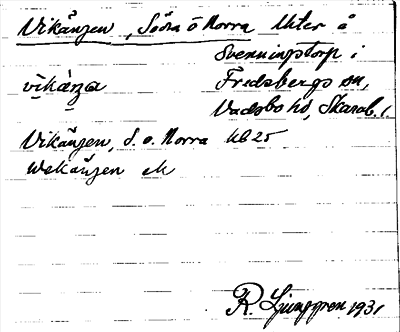 Vikängen, Södra o Norra Uter å
Svenningstorp i
vīkàŋa Fredsbergs sn,
Vadsbo hd, Skarab. l.
Vikängen, S. o. Norra UB 25
Wekängen
R. Ljunggren 1931